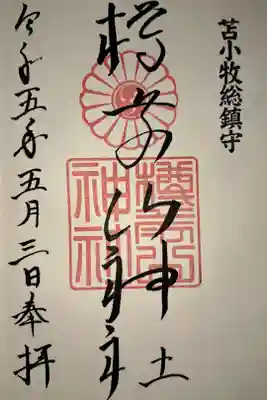 苫小牧総鎮守
樽前山神社
樽前山
神社
令和五年五月三日奉拝